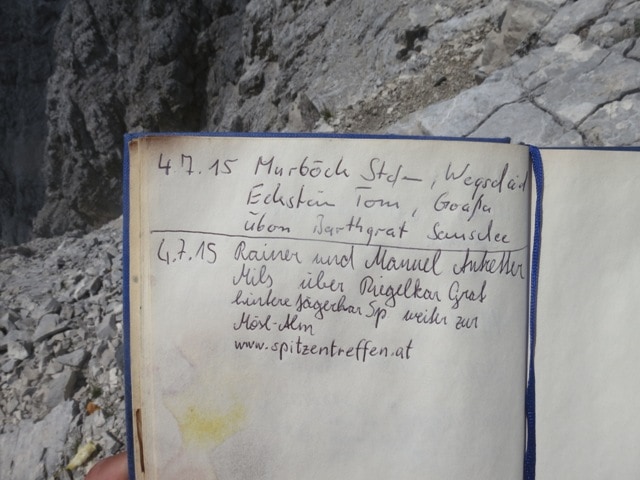 4.7.15 Murböck Stefan, Wegscheid
Eckstein Tom, Goaßa
übern Barthgrat
4.7.15 Rainer und Manuel Anketter
Mils über Riegelkar Grat
hintere Jägerkar Sp weiter zur
Mösl-Alm
www.spitzentreffen.at